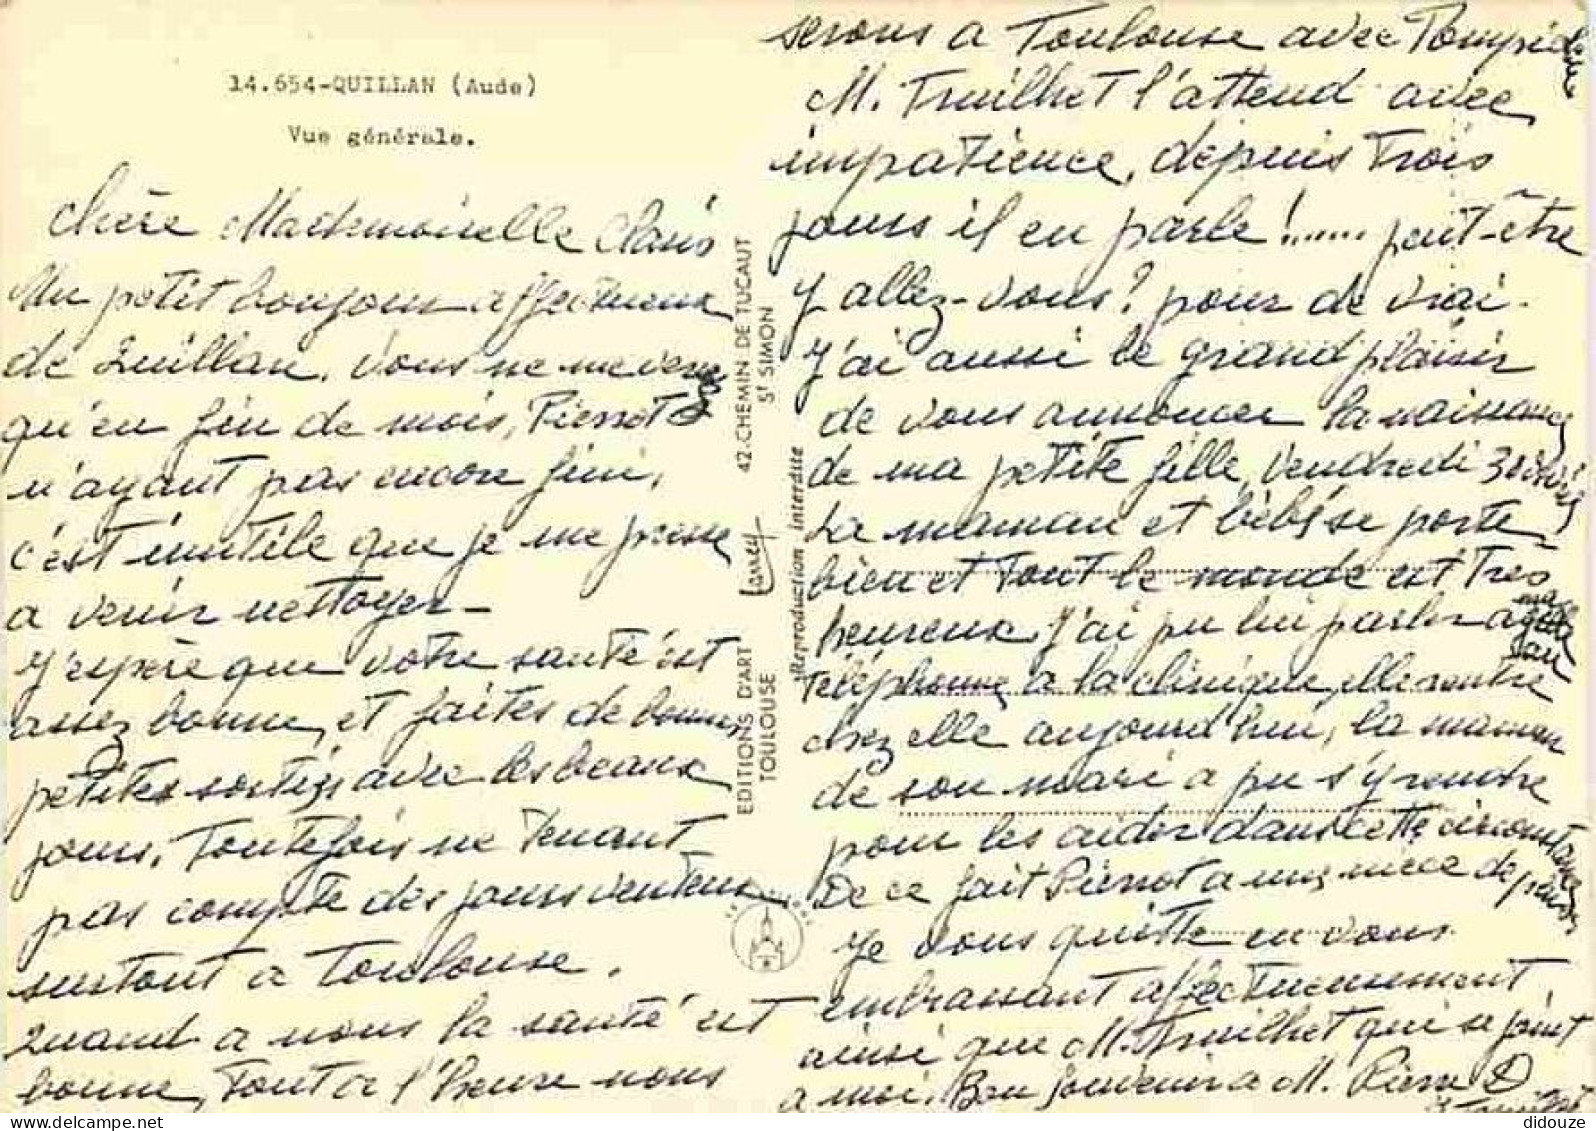 14.654-QUILLAN (Aude)
Vue générale.
Chère Mademoiselle
Un petit bonjour affectueux
de Quillan. Vous ne me verrez
qu'en fin de mois, Pierrot
n'ayant pas encore fini,
c'est inutile que je me presse
a venir nettoyer -
J'espère que votre santé est
assez bonne, et faites de bonnes
petites sorties avec les beaux
jours. Toutefois ne tenant
pas compte des jours venteux
surtout a Toulouse.
Quand a nous la santé est
bonne, Tout a l'heure nous
serons a Toulouse avec Pompidou
M. Truilhet l'attend avec
impatience, depuis trois
jours il en parle !...... peut-être
y allez-vous? pour de vrai.
J'ai aussi le grand plaisir
de vous annoncer la naissance
de ma petite fille, vendredi 30
La maman et bébé se porte
bien et tout le monde est très
heureux. J'ai pu lui parler
au
téléphone a la clinique, elle rentre
chez elle aujourd'hui, la maman
de son mari a pu s'y rendre
pour les aider dans cette circonstance
De ce fait Pierrot a une nièce de plus
Je vous quitte en vous
embrassant affectueusement
ainsi que M. Truilhet qui se joint
a moi. Bon souvenir a M. Pierre
EDITIONS D'ART Larrey 42. CHEMIN DE TUCAUT
TOULOUSE St SIMON
Reproduction interdite
didouze